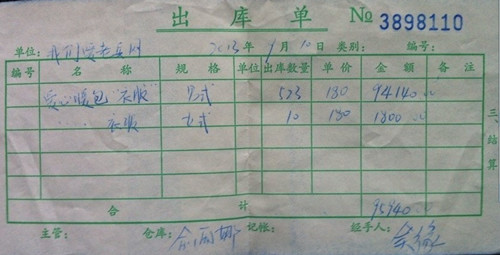 出库单 № 3898110
单位: 2013年9月10日 类别: 编号:
编号 名称 规格 单位 出库数量 单价 金额 备注
爱心暖包"衣服" 男式 523 180 94140.00
衣服 女式 10 180 1800.00
合计 95940.00
主管: 仓库: 记帐: 经手人:
三、结算